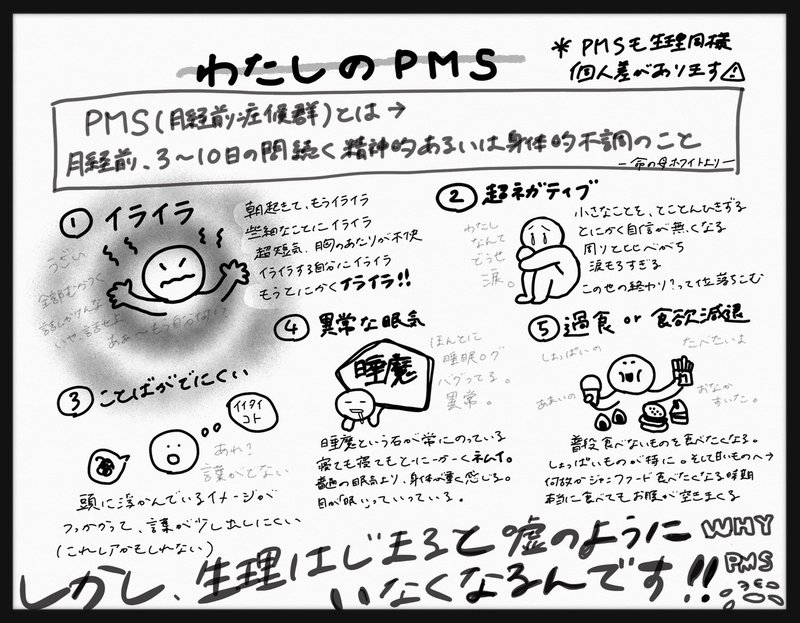 わたしのPMS
＊PMSも生理同様
個人差があります⚠
PMS(月経前症候群)とは→
月経前、3〜10日の間続く精神的あるいは身体的不調のこと
ー命の母ホワイトよりー
① イライラ
朝起きて、もうイライラ
些細なことにイライラ
超短気、胸のあたりが不快
イライラする自分にイライラ
もうとにかくイライラ!!
うざい
全部むかつく
話しかけんな
いや、話せよ
ああ〜もう自分なに?
② 超ネガティブ
小さなことを、とことんひきずる
とにかく自信が無くなる
周りと比べがち
涙もろすぎる
この世の終わり?って位落ちこむ
わたし
なんて
どうせ
涙。
③ ことばがでにくい
イイタイ
コト
あれ?
言葉がでない
頭に浮かんでいるイメージが
つっかかって、言葉が少し出しにくい
(これレアかもしれない)
④ 異常な眠気
睡魔
ほんとに
睡眠ログ
バグってる。
異常。
睡魔という石が常にのっている
寝ても寝てもとーにーかーくネムイ。
普通の眠気より、身体が重く感じる。
目が「眠い」っていっている。
⑤ 過食 or 食欲減退
しょっぱいの
たべたいよ
あまいの
おなか
すいた。
普段食べないものを食べたくなる。
しょっぱいものが特に。そして甘いものへ→
何故かジャンクフード食べたくなる時期
本当に食べてもお腹が空きまくる
しかし、生理はじまると嘘のように
いなくなるんです!!
WHY
PMS